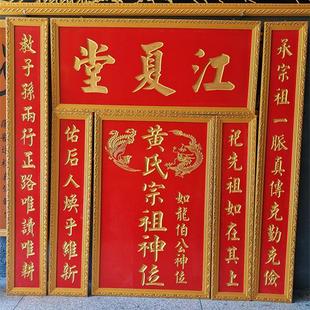 江夏堂
承宗祖一脈真傳克勤克儉
教子孫兩行正路唯讀唯耕
祀先祖如在其上
佑后人煥乎維新
如龍伯公神位
黄氏宗祖神位